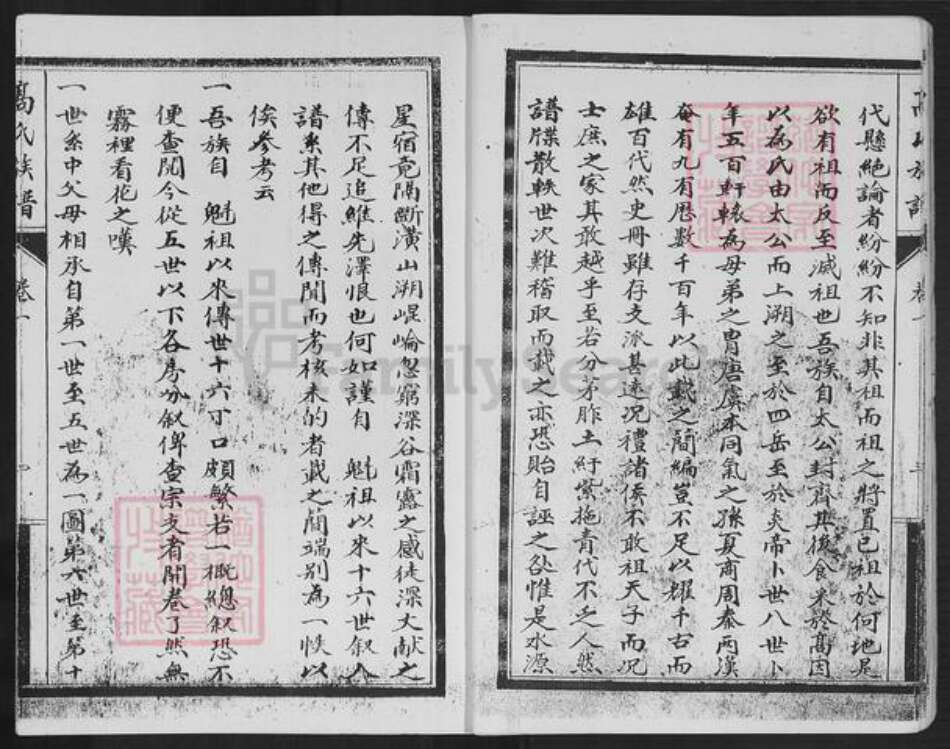 代懸絕論者紛紛不知非其祖而祖之將置己祖於何地是
欲有祖而反至滅祖也吾族自太公封齊其後食采於髙因
以為氏由太公而上溯之至於四岳至於炎帝卜世八世卜
年五百軒轅為母弟之胄唐虞本同氣之孫夏商周秦兩漢
奄有九有歷數千百年以此載之簡編豈不足以耀千古而
雄百代然史冊雖存支派甚遠况禮諸侯不敢祖天子而况
士庶之家其敢越乎至若分茅胙土紆紫拖青代不乏人然
譜牒散軼世次難稽取而載之亦恐貽自誣之咎惟是水源
星宿竟隔斷潢山溯崐崘忽窮深谷霜露之感徒深文献之
傳不足追維先澤恨也何如謹自 魁祖以來十六世叙入
譜系其他得之傳聞而考核未的者載之簡端別為一帙以
俟參考云
一吾族自 魁祖以來傳世十六丁口頗繁若一概總叙恐不
便查閱今從五世以下各房分叙俾查宗支者開卷了然無
霧裡看花之嘆
一世系中父母相承自第一世至五世為一圖第六世至第十
髙氏族譜
卷一
FamilySearch